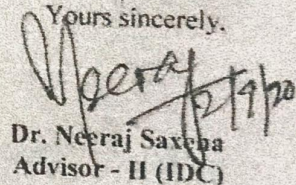 Yours sincerely.
Neeraj
2/9/20
Dr. Neeraj Saxena
Advisor - II (IDC)